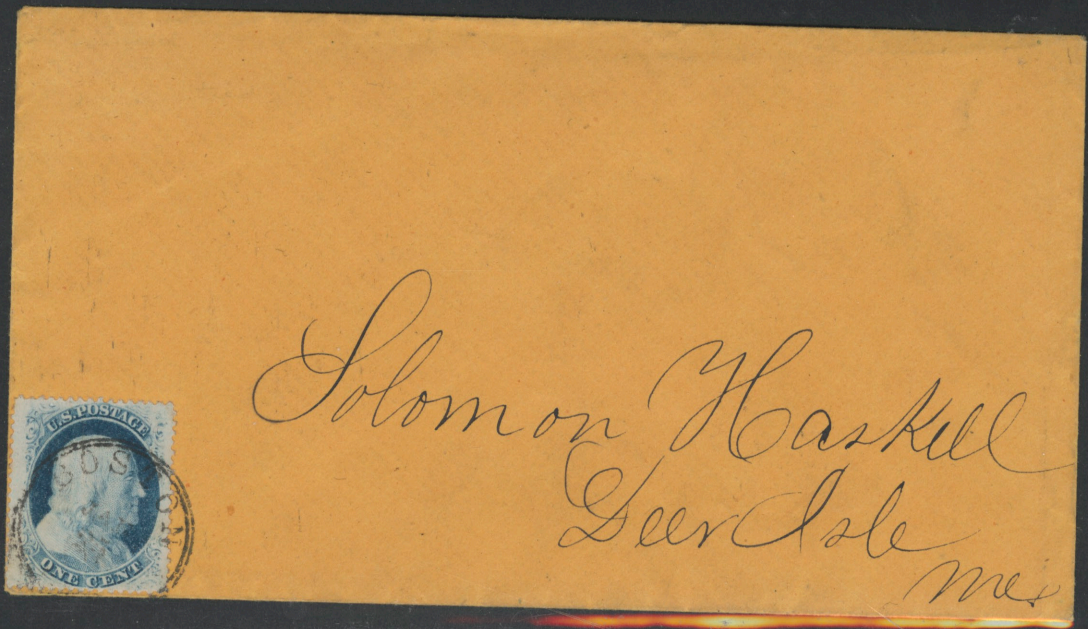 Solomon Haskell
Deer Isle
Me.
U.S. POSTAGE
ONE CENT
BOSTON